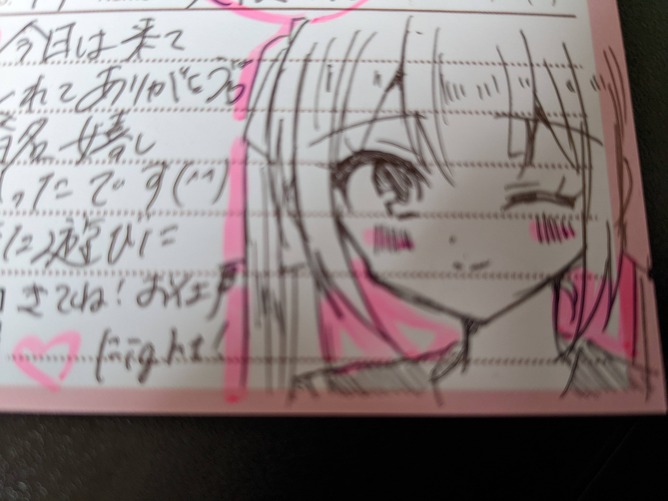 今日は来て
くれてありがとう
嬉し
かったです(^^)
また遊びに
きてね!お仕事
fight!